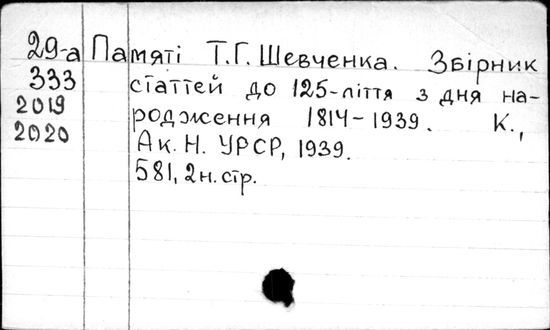 29-а Памяті Т.Г. Шевченка. Збірник
333 статтей до 125-ліття з дня на-
2019 родження 1814-1939. К.,
2020 Ак. Н. УРСР, 1939.
581, 2н. стр.